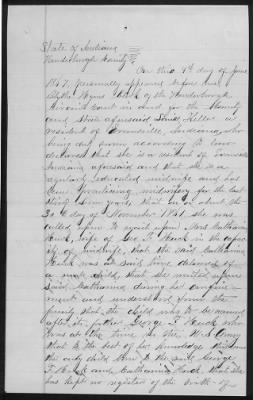 State of Indiana
Vanderburgh County
On this 4th day of June
1867, personally appeared before me
Clerk of the Vanderburgh
Circuit Court in and for the County
and State aforesaid Keller a
resident of Evansville, Indiana, who
being duly sworn according to law
declares that she is a resident of Evansville
Indiana aforesaid and that she is a
regularly educated midwife and has
been practicing midwifery for the last
thirty years, that on or about the
30th day of November 1861 she was
called upon to wait upon Mrs Catharina
wife of Geo. F. in the capa
city of midwife, that the said Catharina
was at said time delivered of
a male child, that she waited upon
said Catharina during her confine-
ment and understood from the
family that the child was to be named
after its father, George F. who
was at the time in the U.S. Army
that to the best of her knowledge this was
the only child born to the said George
F. and Catharina that she
has kept no register of the birth of